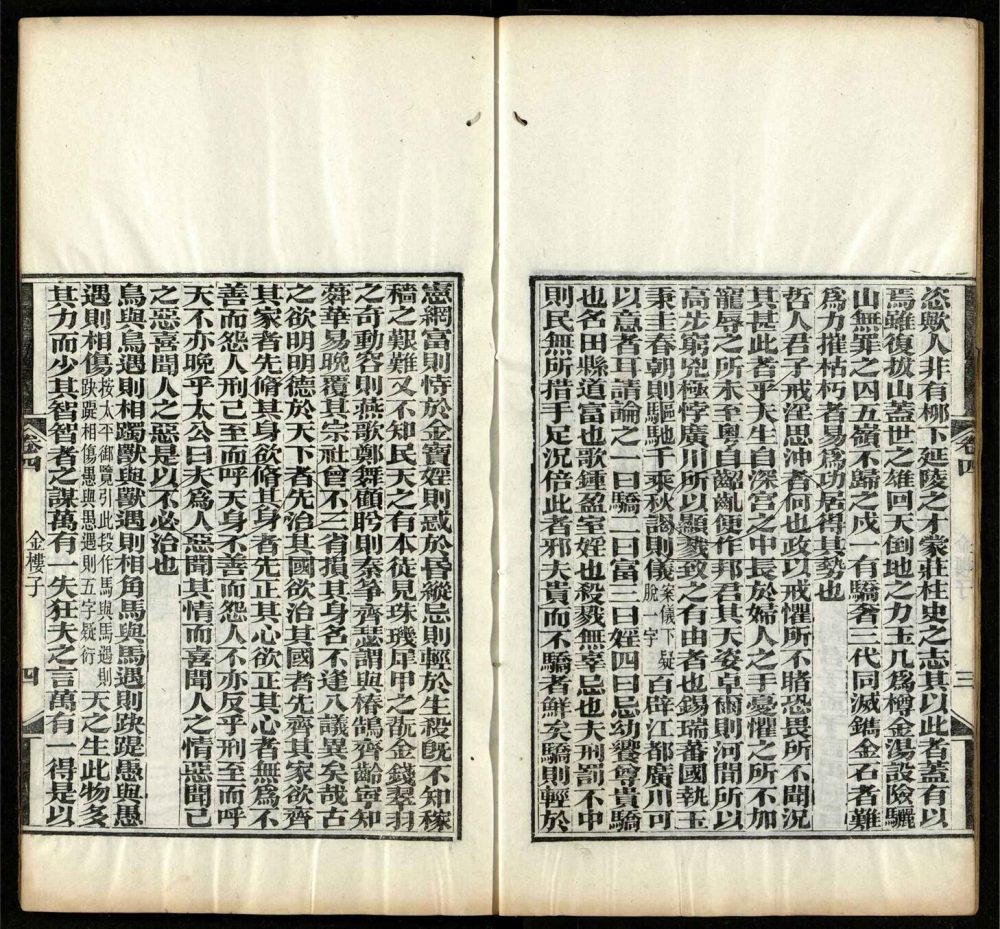 恣歟人非有柳下延陵之才蒙莊柱史之志其以此者蓋有以
焉雖復拔山蓋世之雄回天倒地之力玉几爲樽金湯設險驪
山無罪之囚五嶺不歸之戍一有驕奢三代同滅鐫金石者難
爲力摧枯朽者易爲功居得其勢也
哲人君子戒淫思沖者何也政以戒懼所不睹恐畏所不聞況
其甚此者乎夫生自深宮之中長於婦人之手憂懼之所不加
寵辱之所未至粵自齠齔便作邦君其天姿卓爾則河間所以
高步窮兇極悖廣川所以顯戮致之有由者也錫瑞蕃國執玉
秉圭春朝則驅馳千乘秋謁則儀案儀下疑脫一字百辟江都廣川可
以意者耳請論之一曰驕二曰富三曰婬四曰忌幼饗尊貴驕
也名田縣道富也歌鍾盈室婬也殺戮無辜忌也夫刑罰不中
則民無所措手足況倍此者邪夫貴而不驕者鮮矣驕則輕於
卷四
三
憲網富則恃於金寶婬則惑於昏縱忌則輕於生殺旣不知稼
穡之艱難又不知民天之有本徒見珠璣犀甲之翫金錢翠羽
之奇動容則燕歌鄭舞顧眄則秦箏齊瑟謂與椿鵠齊齡寧知
蕣華易晚覆其宗社曾不三省損其身名不逢八議異矣哉古
之欲明明德於天下者先治其國欲治其國者先齊其家欲齊
其家者先脩其身欲脩其身者先正其心欲正其心者無爲不
善而怨人刑己至而呼天身不善而怨人不亦反乎刑至而呼
天不亦晚乎太公曰夫爲人惡聞其情而喜聞人之情惡聞己
之惡喜聞人之惡是以不必治也
鳥與鳥遇則相躅獸與獸遇則相角馬與馬遇則趹踶愚與愚
遇則相傷按太平御覽引此段作馬與馬遇則趹踶相傷愚與愚遇則五字疑衍天之生此物多
其力而少其智智者之謀萬有一失狂夫之言萬有一得是以
卷四
金樓子
四